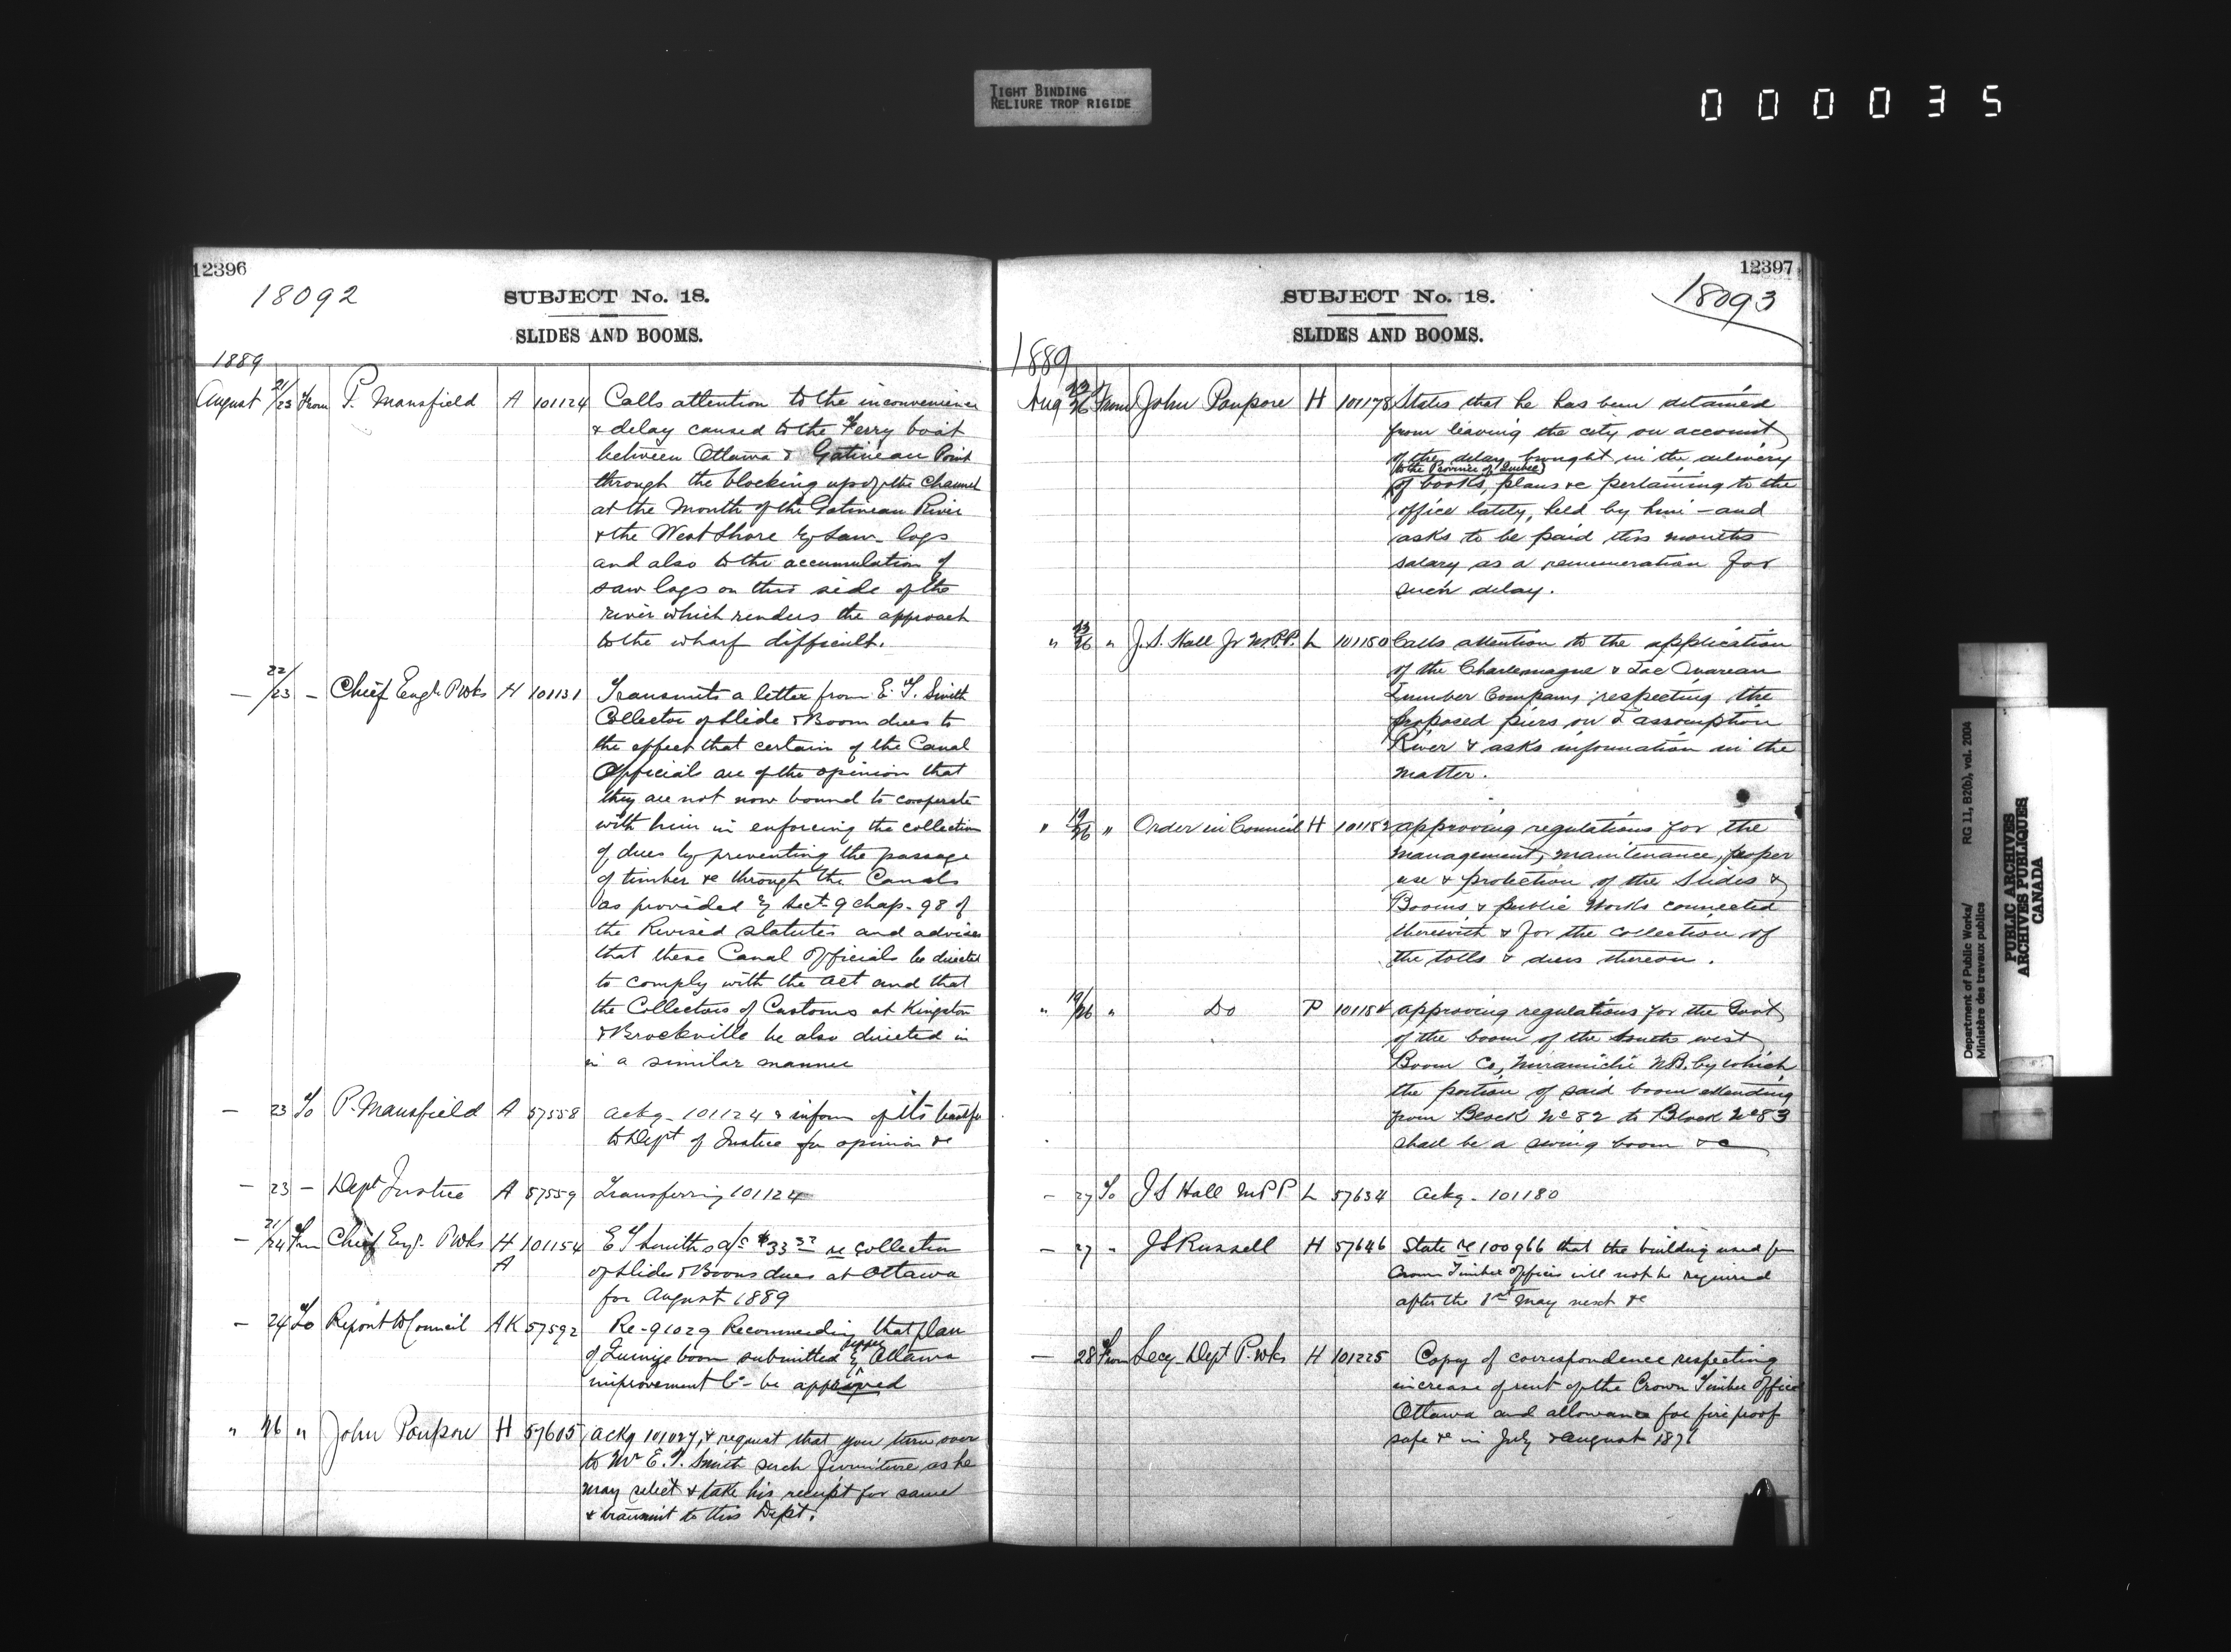 TIGHT BINDING
RELIURE TROP RIGIDE
000035
12396
18092
SUBJECT No. 18.
SLIDES AND BOOMS.
1889
August 21/23 From P. Mansfield A 101124 Calls attention to the inconvenience
& delay caused to the Ferry boat
between Ottawa & Gatineau Point
through the blocking up of the Channel
at the Mouth of the Gatineau River
& the West Shore by saw-logs
and also to the accumulation of
saw logs on this side of the
river which renders the approach
to the wharf difficult.
— 22/23 — Chief Engr. P Wks H 101131 Transmits a letter from E. T. Smith
Collector of Slide & Boom dues to
the effect that certain of the Canal
Officials are of the opinion that
they are not now bound to cooperate
with him in enforcing the collection
of dues by preventing the passage
of timber &c through the Canals
as provided by Sect. 9 Chap. 98 of
the Revised Statutes and advises
that these Canal Officials be directed
to comply with the act and that
the Collectors of Customs at Kingston
& Brockville be also directed in
in a similar manner
— 23 To P. Mansfield A 57558 Ackg. 101124 & inform of its transfer
to Dept of Justice for opinion &c
— 23 — Dept Justice A 57559 Transferring 101124
— 21/24 From Chief Engr. P Wks H 101154 E T Smith's a/c $33 32 re collection
A
of Slide & Boom dues at Ottawa
for August 1889
— 24 To Report to Council AK 57592 Re-91029 Recommending that plan
of Quinze boom submitted by upper Ottawa
improvement Co - be approved
" 26 " John Poupore H 57605 Ackg 101027, & request that you turn over
to Mr E. T. Smith such furniture as he
may select & take his receipt for same
& transmit to this Dept.
12397
18093
SUBJECT No. 18.
SLIDES AND BOOMS.
1889
Aug 23/26 From John Poupore H 101178 States that he has been detained
from leaving the city on account
of the delay brought in the delivery
(to the Province of Quebec)
of books, plans &c pertaining to the
office lately, held by him - and
asks to be paid this months
salary as a remuneration for
such delay.
" 23/26 " J. S. Hall Jr M.P.P. L 101180 Calls attention to the application
of the Charlemagne & Lac Ouareau
Lumber Company respecting the
proposed piers on L'assomption
River & asks information in the
matter.
" 19/26 " Order in Council H 101182 approving regulations for the
management, maintenance, proper
use & protection of the Slides &
Booms & public works connected
therewith & for the collection of
the tolls & dues thereon.
" 19/26 " Do P 101184 approving regulations for the Govt
of the boom of the South west
Boom Co, Miramichi N.B. by which
the portion of said boom extending
from Block No 82 to Block No 83
shall be a swing boom &c
— 27 To J S Hall M P P. L 57634 Ackg. 101180
— 27 " J S Russell H 57646 State re 100966 that the building used for
Crown Timber Offices will not be required
after the 1st May next &c
— 28 From Secy Dept P. Wks H 101225 Copy of correspondence respecting
increase of rent of the Crown Timber Office
Ottawa and allowance for fire proof
safe &c in July & August 1876
Department of Public Works/ RG 11, B2(b), vol. 2004
Ministère des travaux publics
PUBLIC ARCHIVES
ARCHIVES PUBLIQUES
CANADA